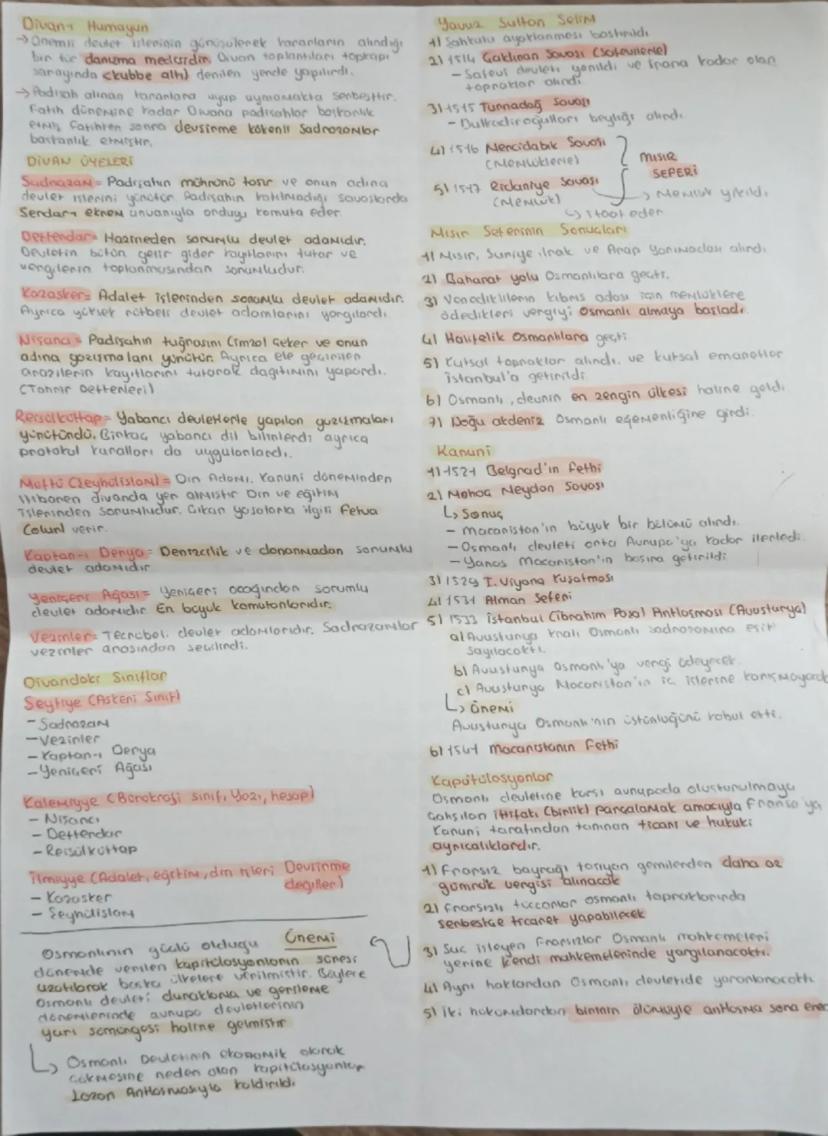 Divan-ı Humayun
→ Önemli devlet işlerinin görüşülerek kararların alındığı
bir tür danışma meclisidir. Divan toplantıları topkapı
sarayında (kubbe altı) denilen yerde yapılırdı.
→ Padişah alınan kararlara uyup uymamakta serbesttir.
Fatih dönemine kadar Divana padişahlar başkanlık
etmiş Fatihten sonra devşirme kökenli Sadrazamlar
başkanlık etmiştir.
DİVAN ÜYELERİ
Sadrazam = Padişahın mührünü taşır ve onun adına
devlet işlerini yürütür. Padişahın katılmadığı savaşlarda
Serdar-ı ekrem ünvanıyla orduya komuta eder.
Defterdar = Hazineden sorumlu devlet adamıdır.
Devletin bütün gelir gider kayıtlarını tutar ve
vergilerin toplanmasından sorumludur.
Kazasker = Adalet işlerinden sorumlu devlet adamıdır.
Ayrıca yüksek rütbeli devlet adamlarını yargılardı.
Nişancı = Padişahın tuğrasını (imza) çeker ve onun
adına yazışmaları yürütür. Ayrıca ele geçirilen
arazilerin kayıtlarını tutarak dağıtımını yapardı.
(Tahrir Defterleri)
Reisülküttap = Yabancı devletlerle yapılan yazışmaları
yürütürdü. Birkaç yabancı dil bilirlerdi ayrıca
protokol kuralları da uygulanlardı.
Müftü (Şeyhülislam) = Din Adamı. Kanuni döneminden
itibaren divanda yer almıştır Din ve eğitim
işlerinden sorumludur. Çıkan yasalarla ilgili Fetva
(olur) verir.
Kaptan-ı Derya = Denizcilik ve donanmadan sorumlu
devlet adamıdır
Yeniçeri Ağası = Yeniçeri ocağından sorumlu
devlet adamıdır En büyük komutanlarıdır.
Vezirler = Tecrübeli devlet adamlarıdır. Sadrazamlar
vezirler arasından seçilirdi.
Divandaki Sınıflar
Seyfiye (Askeri Sınıf)
- Sadrazam
- Vezirler
- Kaptan-ı Derya
- Yeniçeri Ağası
Kalemiyye (Bürokrasi sınıfı, Yazı, hesap)
- Nişancı
- Defterdar
- Reisülküttap
İlmiyye (Adalet, eğitim, din işleri Devşirme
değiller)
- Kazasker
- Şeyhülislam
Önemi
Osmanlının güçlü olduğu
dönemde verilen kapitülasyonların süresi
uzatılarak başka ülkelere verilmiştir. Böylece
Osmanlı devleti duraklama ve gerileme
dönemlerinde avrupa devletlerinin
yarı sömürgesi haline gelmiştir
↳ Osmanlı Devletinin ekonomik olarak
çökmesine neden olan kapitülasyonlar
Lozan Antlaşmasıyla kaldırıldı.
Yavuz Sultan Selim
1) Şahkulu ayaklanması bastırıldı
2) 1514 Çaldıran Savaşı (Safevilerle)
- Safevi devleti yenildi ve İrana kadar olan
topraklar alındı
3) 1515 Turnadağ Savaşı
- Dulkadiroğulları beyliği alındı.
4) 1516 Mercidabık Savaşı
(Memlüklerle)
5) 1517 Ridaniye Savaşı
(Memlük)
MISIR
SEFERİ
→ Memlük yıkıldı
↳ itaat eder
Mısır Seferinin Sonuçları
1) Mısır, Suriye, Irak ve Arap Yarımadası alındı.
2) Baharat yolu Osmanlılara geçti.
3) Venediklilerin kıbrıs adası için memlüklere
ödedikleri vergiyi Osmanlı almaya başladı.
4) Halifelik Osmanlılara geçti
5) Kutsal topraklar alındı. ve kutsal emanetler
İstanbul'a getirildi
6) Osmanlı, devrin en zengin ülkesi haline geldi.
7) Doğu akdeniz Osmanlı egemenliğine girdi.
Kanuni
1) 1521 Belgrad'ın Fethi
2) Mohaç Meydan Savaşı
↳ Sonuç
- Macaristan'ın büyük bir bölümü alındı.
- Osmanlı devleti orta Avrupa'ya kadar ilerledi.
- Yanoş Macaristan'ın başına getirildi
3) 1529 I. Viyana Kuşatması
4) 1531 Alman Seferi
5) 1533 İstanbul (İbrahim Paşa) Antlaşması (Avusturya)
a) Avusturya kralı Osmanlı sadrazamına eşit
sayılacaktı.
b) Avusturya Osmanlı'ya vergi ödeyecek.
c) Avusturya Macaristan'ın iç işlerine karışmayacak
↳ Önemi
Avusturya Osmanlı'nın üstünlüğünü kabul etti.
6) 1541 macaristanın Fethi
Kapütülasyonlar
Osmanlı devletine karşı avrupada oluşturulmaya
çalışılan ittifakı (birlik) parçalamak amacıyla Fransa'ya
Kanuni tarafından tanınan ticari ve hukuki
ayrıcalıklardır.
1) Fransız bayrağı taşıyan gemilerden daha az
gümrük vergisi alınacak
2) Fransızlı tüccarlar osmanlı topraklarında
serbestçe ticaret yapabilecek
3) Suç işleyen Fransızlar Osmanlı mahkemeleri
yerine kendi mahkemelerinde yargılanacaktı.
4) Aynı haklardan Osmanlı devletide yararlanacaktı
5) İki hükümdardan birinin ölümüyle antlaşma sona erer